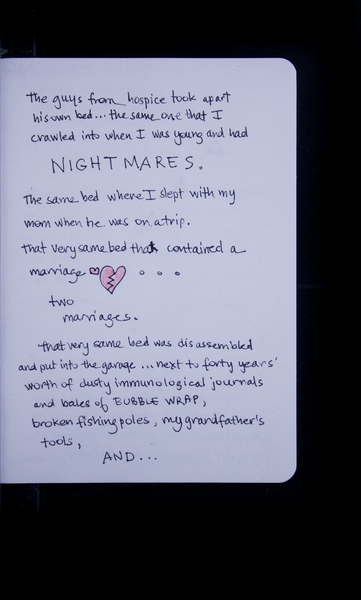 The guys from hospice took apart
his own bed... the same one that I
crawled into when I was young and had
NIGHTMARES.
The same bed where I slept with my
mom when he was on a trip.
That very same bed that contained a
marriage ...
two
marriages.
That very same bed was disassembled
and put into the garage ... next to forty years'
worth of dusty immunological journals
and bales of BUBBLE WRAP,
broken fishing poles, my grandfather's
tools,
AND...